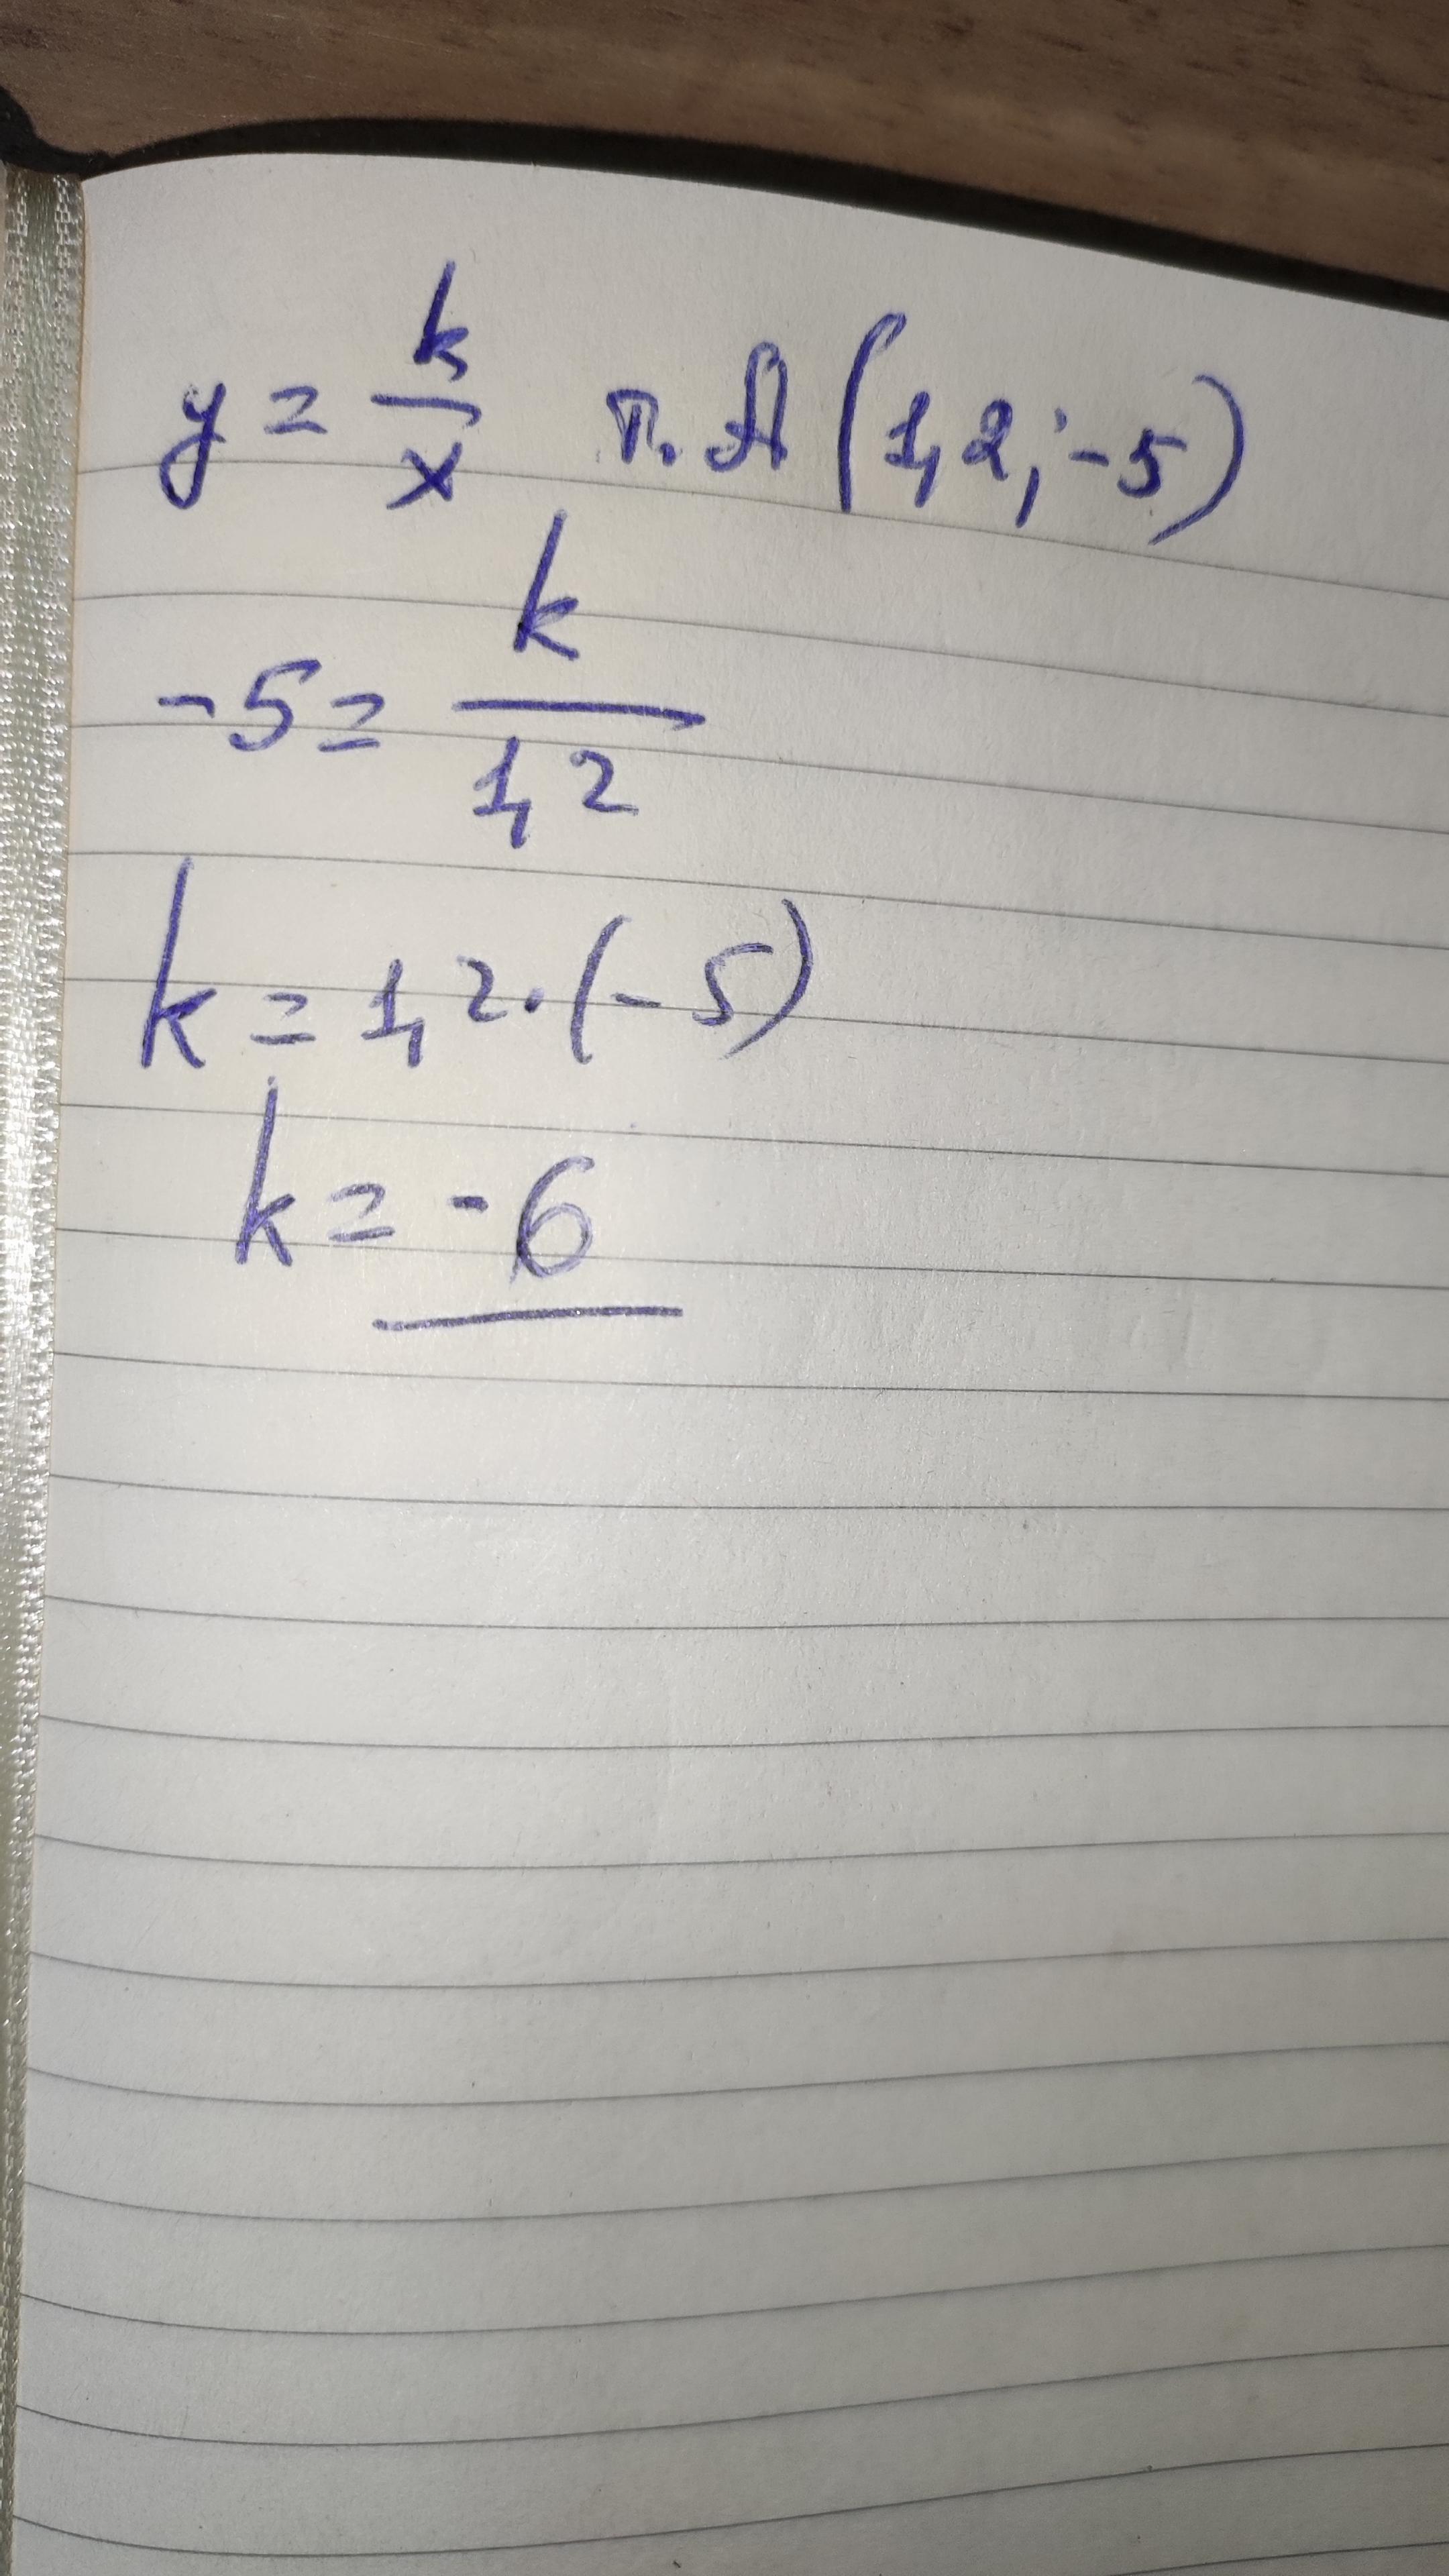 y = k/x т. A (1,2; -5)
-5 = k/1,2
k = 1,2 · (-5)
k = -6